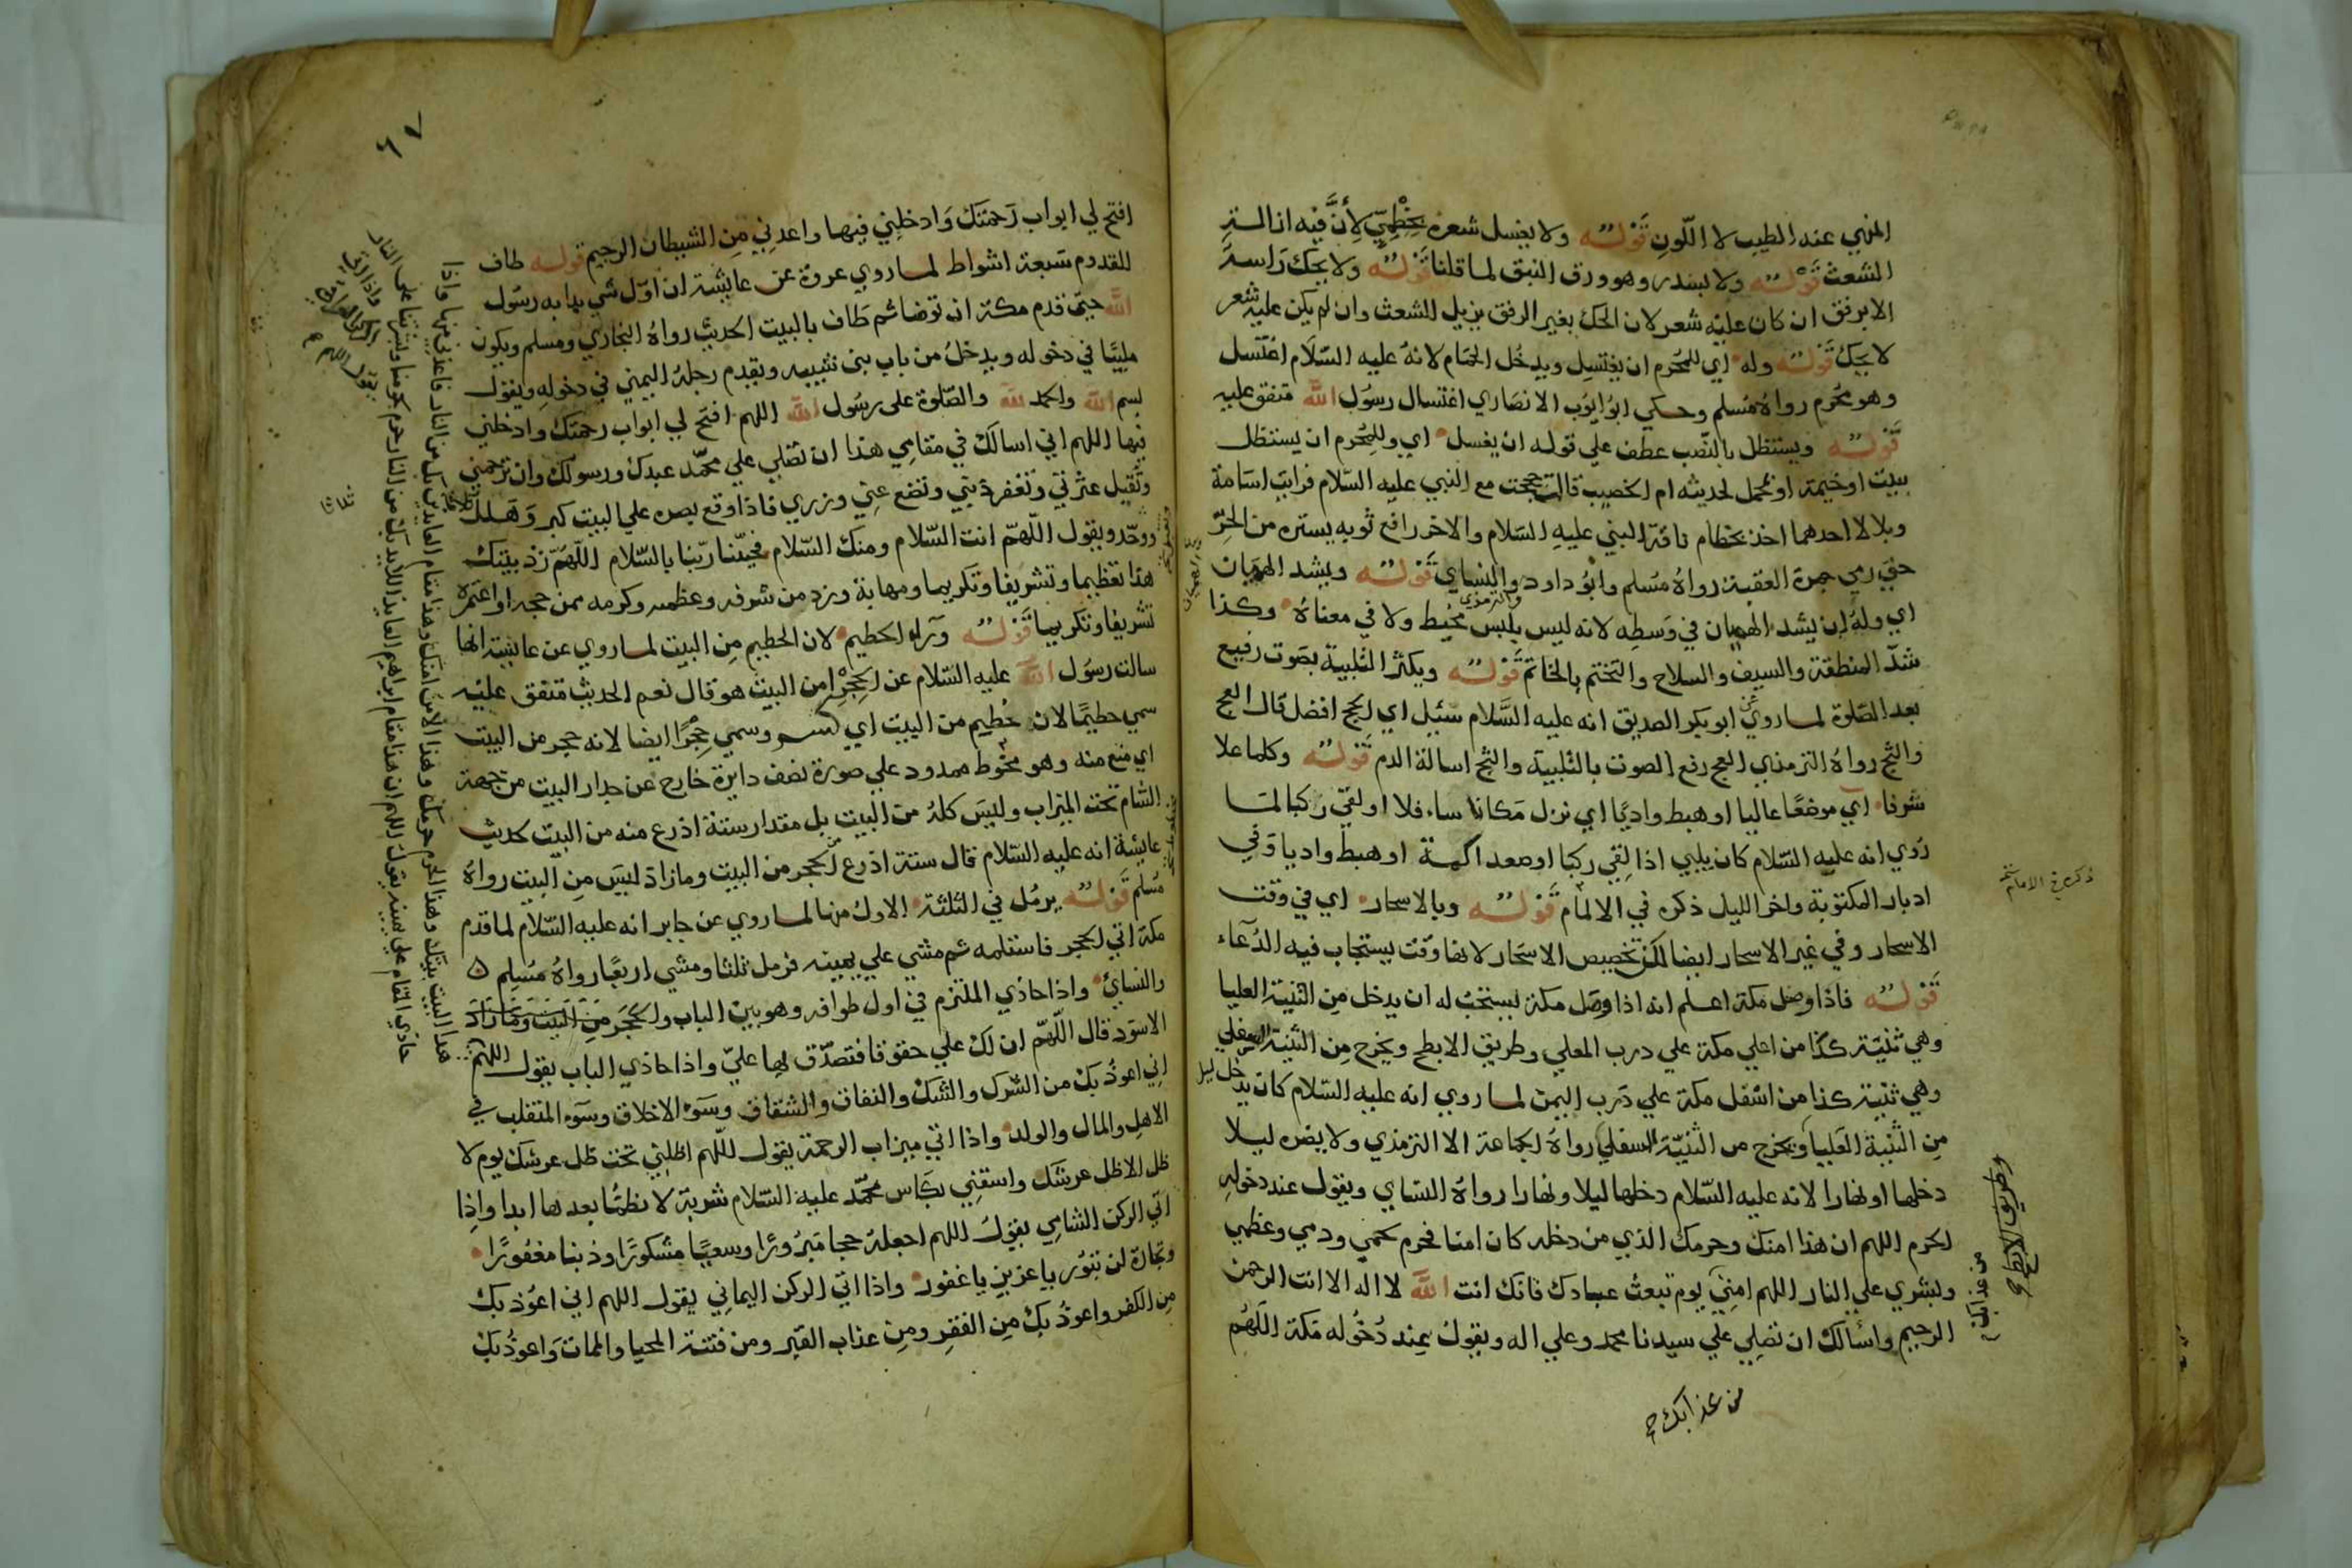 المنهي عنه الطيب لا اللون قوله ولا يغسل شعره بخطمي لأن فيه ازالة
الشعث قوله ولا بسدر وهو ورق النبق لما قلنا قوله ولا يحك راسه
الا برفق ان كان عليه شعر لان الحك بغير الرفق يزيل الشعث وان لم يكن عليه شعر
لا يحك قوله وله اي للمحرم ان يغتسل ويدخل الحمام لانه عليه السلام اغتسل
وهو محرم رواه مسلم وحكي ابو ايوب الانصاري اغتسال رسول الله متفق عليه
قوله ويستظل بالنصب عطف علي قوله ان يغسل اي وللمحرم ان يستظل
ببيت او خيمة او محمل لحديثه ام الحصيب قالت حججت مع النبي عليه السلام فرايت اسامة
وبلالا احدهما اخذ بخطام ناقة النبي عليه السلام والاخر رافع ثوبه يستره من الحر
حتي رمي جمرة العقبة رواه مسلم وابو داود والنساي قوله ويشد الهميان
والترمذي
اي وله ان يشد الهميان في وسطه لانه ليس بلبس مخيط ولا في معناه وكذا
شد المنطقة والسيف والسلاح والتختم بالخاتم قوله ويكثر التلبية بصوت رفيع
بعد الصلوة لما روي عن ابو بكر الصديق انه عليه السلام سئيل اي الحج افضل قال العج
والثج رواه الترمذي العج رفع الصوت بالتلبية والثج اسالة الدم قوله وكلما علا
شرفا اي موضعا عاليا او هبط واديا اي نزل مكانا سافلا او لقي ركبا لما
روي انه عليه السلام كان يلبي اذا لقي ركبا او صعد اكمة او هبط واديا وفي
ادبار المكتوبة واخر الليل ذكره في الالمام قوله وبالاسحار اي في وقت
الاسحار وفي غير الاسحار ايضا لكن تخصيص الاسحار لانها وقت يستجاب فيه الدعاء
قوله فاذا وصل مكة اعلم انه اذا وصل مكة يستحب له ان يدخل من الثنية العليا
وهي ثنية كذا من اعلي مكة علي درب المعلي وطريق الابطح ويخرج من الثنية السفلي
وهي ثنية كذا من اسفل مكة علي درب اليمن لما روي انه عليه السلام كان يدخل
من الثنية العليا ويخرج من الثنية السفلي رواه الجماعة الا الترمذي ولا يضره ليلا
دخلها او نهارا لانه عليه السلام دخلها ليلا ونهارا رواه النساي ويقول عند دخوله
الحرم اللهم ان هذا امنك وحرمك الذي من دخله كان امنا فحرم لحمي ودمي وعظمي
وبشري علي النار اللهم امني يوم تبعث عبادك فانك انت الله لا اله الا انت الرحمن
الرحيم واسالك ان تصلي علي سيدنا محمد وعلي اله ويقول عند دخوله مكة اللهم
وطريق الابطح
من عذابك
من عذابك
٦٧
افتح لي ابواب رحمتك وادخلني فيها واعدني من الشيطان الرجيم قوله طاف
للقدوم سبعة اشواط لما روي عروة عن عايشة ان اول شي بدا به رسول
الله حين قدم مكة ان توضا ثم طاف بالبيت الحديث رواه البخاري ومسلم ويكون
ملبيا في دخوله ويدخل من باب بني شيبه ويقدم رجله اليمني في دخوله ويقول
بسم الله والحمد لله والصلوة علي رسول الله اللهم افتح لي ابواب رحمتك وادخلني
فيها اللهم اني اسالك في مقامي هذا ان تصلي علي محمد عبدك ورسولك وان ترحمني
وتقيل عثرتي وتغفر ذنبي وتضع عني وزري فاذا وقع بصره علي البيت كبر وهلل
ووحد ويقول اللهم انت السلام ومنك السلام فحينا ربنا بالسلام اللهم زد بيتك
هذا تعظيما وتشريفا وتكريما ومهابة وزد من شرفه وعظمه وكرمه ممن حجه او اعتمره
تشريفا وتكريما قوله وراء الحطيم لان الحطيم من البيت لما روي عن عايشة انها
سالت رسول الله عليه السلام عن الحجر امن البيت هو قال نعم الحديث متفق عليه
سمي حطيما لانه حطيم من البيت اي كسر وسمي حجرا ايضا لانه حجر من البيت
اي منع منه وهو محوط ممدود علي صورة نصف دايرة خارج عن جدار البيت من جهة
الشام تحت الميزاب وليس كله من البيت بل مقدار ستة اذرع منه من البيت لحديث
عايشة انه عليه السلام قال ستة اذرع من الحجر من البيت وما زاد ليس من البيت رواه
مسلم قوله يرمل في الثلثة الاول منها لما روي عن جابر انه عليه السلام لما قدم
مكة اتي الحجر فاستلمه ثم مشي علي يمينه فرمل ثلثا ومشي اربعا رواه مسلم
والنسائ واذا حاذي الملتزم في اول طوافه وهو بين الباب والحجر من البيت وما زاد
الاسود قال اللهم ان لك علي حقوقا فتصدق بها علي واذا حاذي الباب يقول اللهم
اني اعوذ بك من الشرك والشك والنفاق والشقاق وسوء الاخلاق وسوء المنقلب في
الاهل والمال والولد واذا اتي ميزاب الرحمة يقول اللهم اظلني تحت ظل عرشك يوم لا
ظل الا ظل عرشك واسقني بكاس محمد عليه السلام شربة لا نظمئا بعدها ابدا واذا
اتي الركن الشامي يقول اللهم اجعله حجا مبرورا وسعيا مشكورا وذنبا مغفورا
وتجارة لن تبور يا عزيز يا غفور واذا اتي الركن اليماني يقول اللهم اني اعوذ بك
من الكفر واعوذ بك من الفقر ومن عذاب القبر ومن فتنة المحيا والممات واعوذ بك
هذا البيت بيتك وهذا الحرم حرمك وهذا الامن امنك وهذا مقام العايذ بك من النار فاعذني منها واذا
حاذي المقام علي يمينه يقول اللهم ان هذا مقام ابراهيم العايذ اللايذ بك من النار حرم لحومنا وبشرتنا علي النار
واذا اتي
الركن العراقي
يقول اللهم